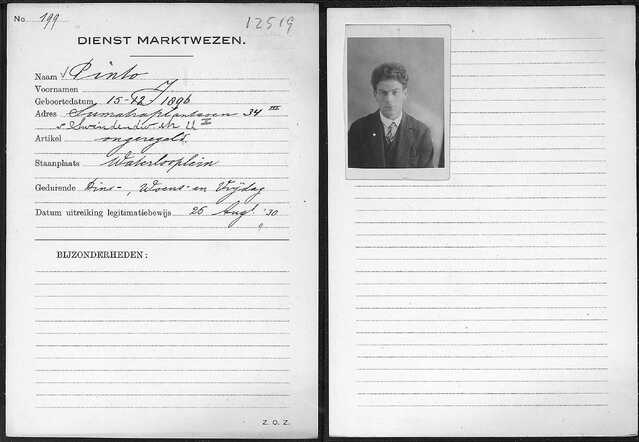 No. 199 12519
DIENST MARKTWEZEN.
Naam Pinto
Voornamen J
Geboortedatum 15-12-1896
Adres Sumatraplantsoen 34 III
Artikel ongeregeld.
Staanplaats Waterlooplein
Gedurende Dins-, Woens- en Vrijdag
Datum uitreiking legitimatiebewijs 26 Aug. '30
BIJZONDERHEDEN:
Z. O. Z.